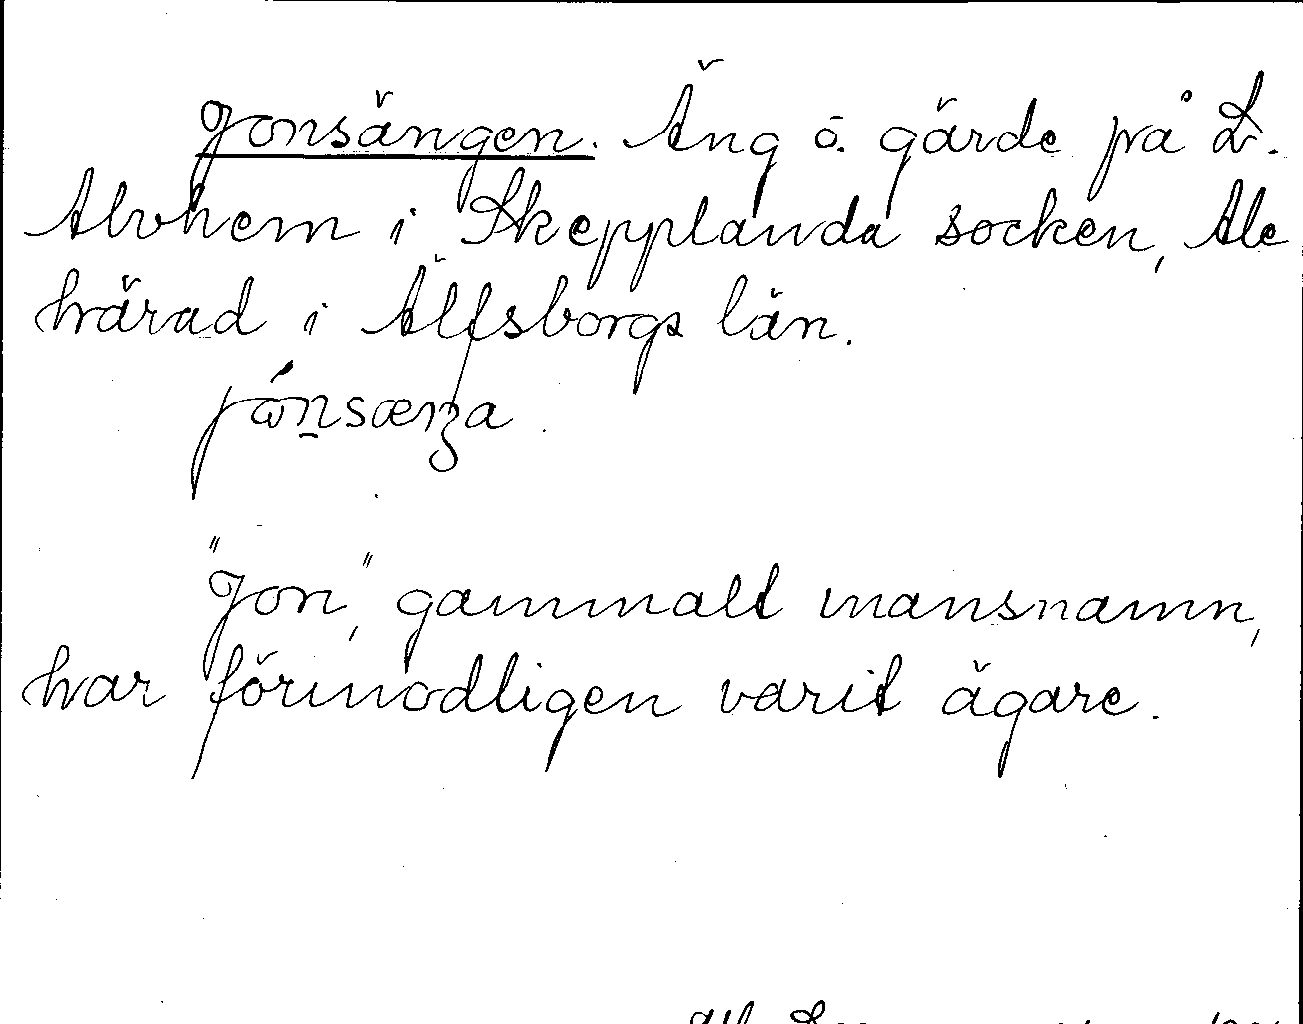 Jonsängen. Äng o. gärde på L.
Alvhem i Skepplanda socken, Ale
härad i Älfsborgs län.
"Jon", gammalt mansnamn,
har förmodligen varit ägare.